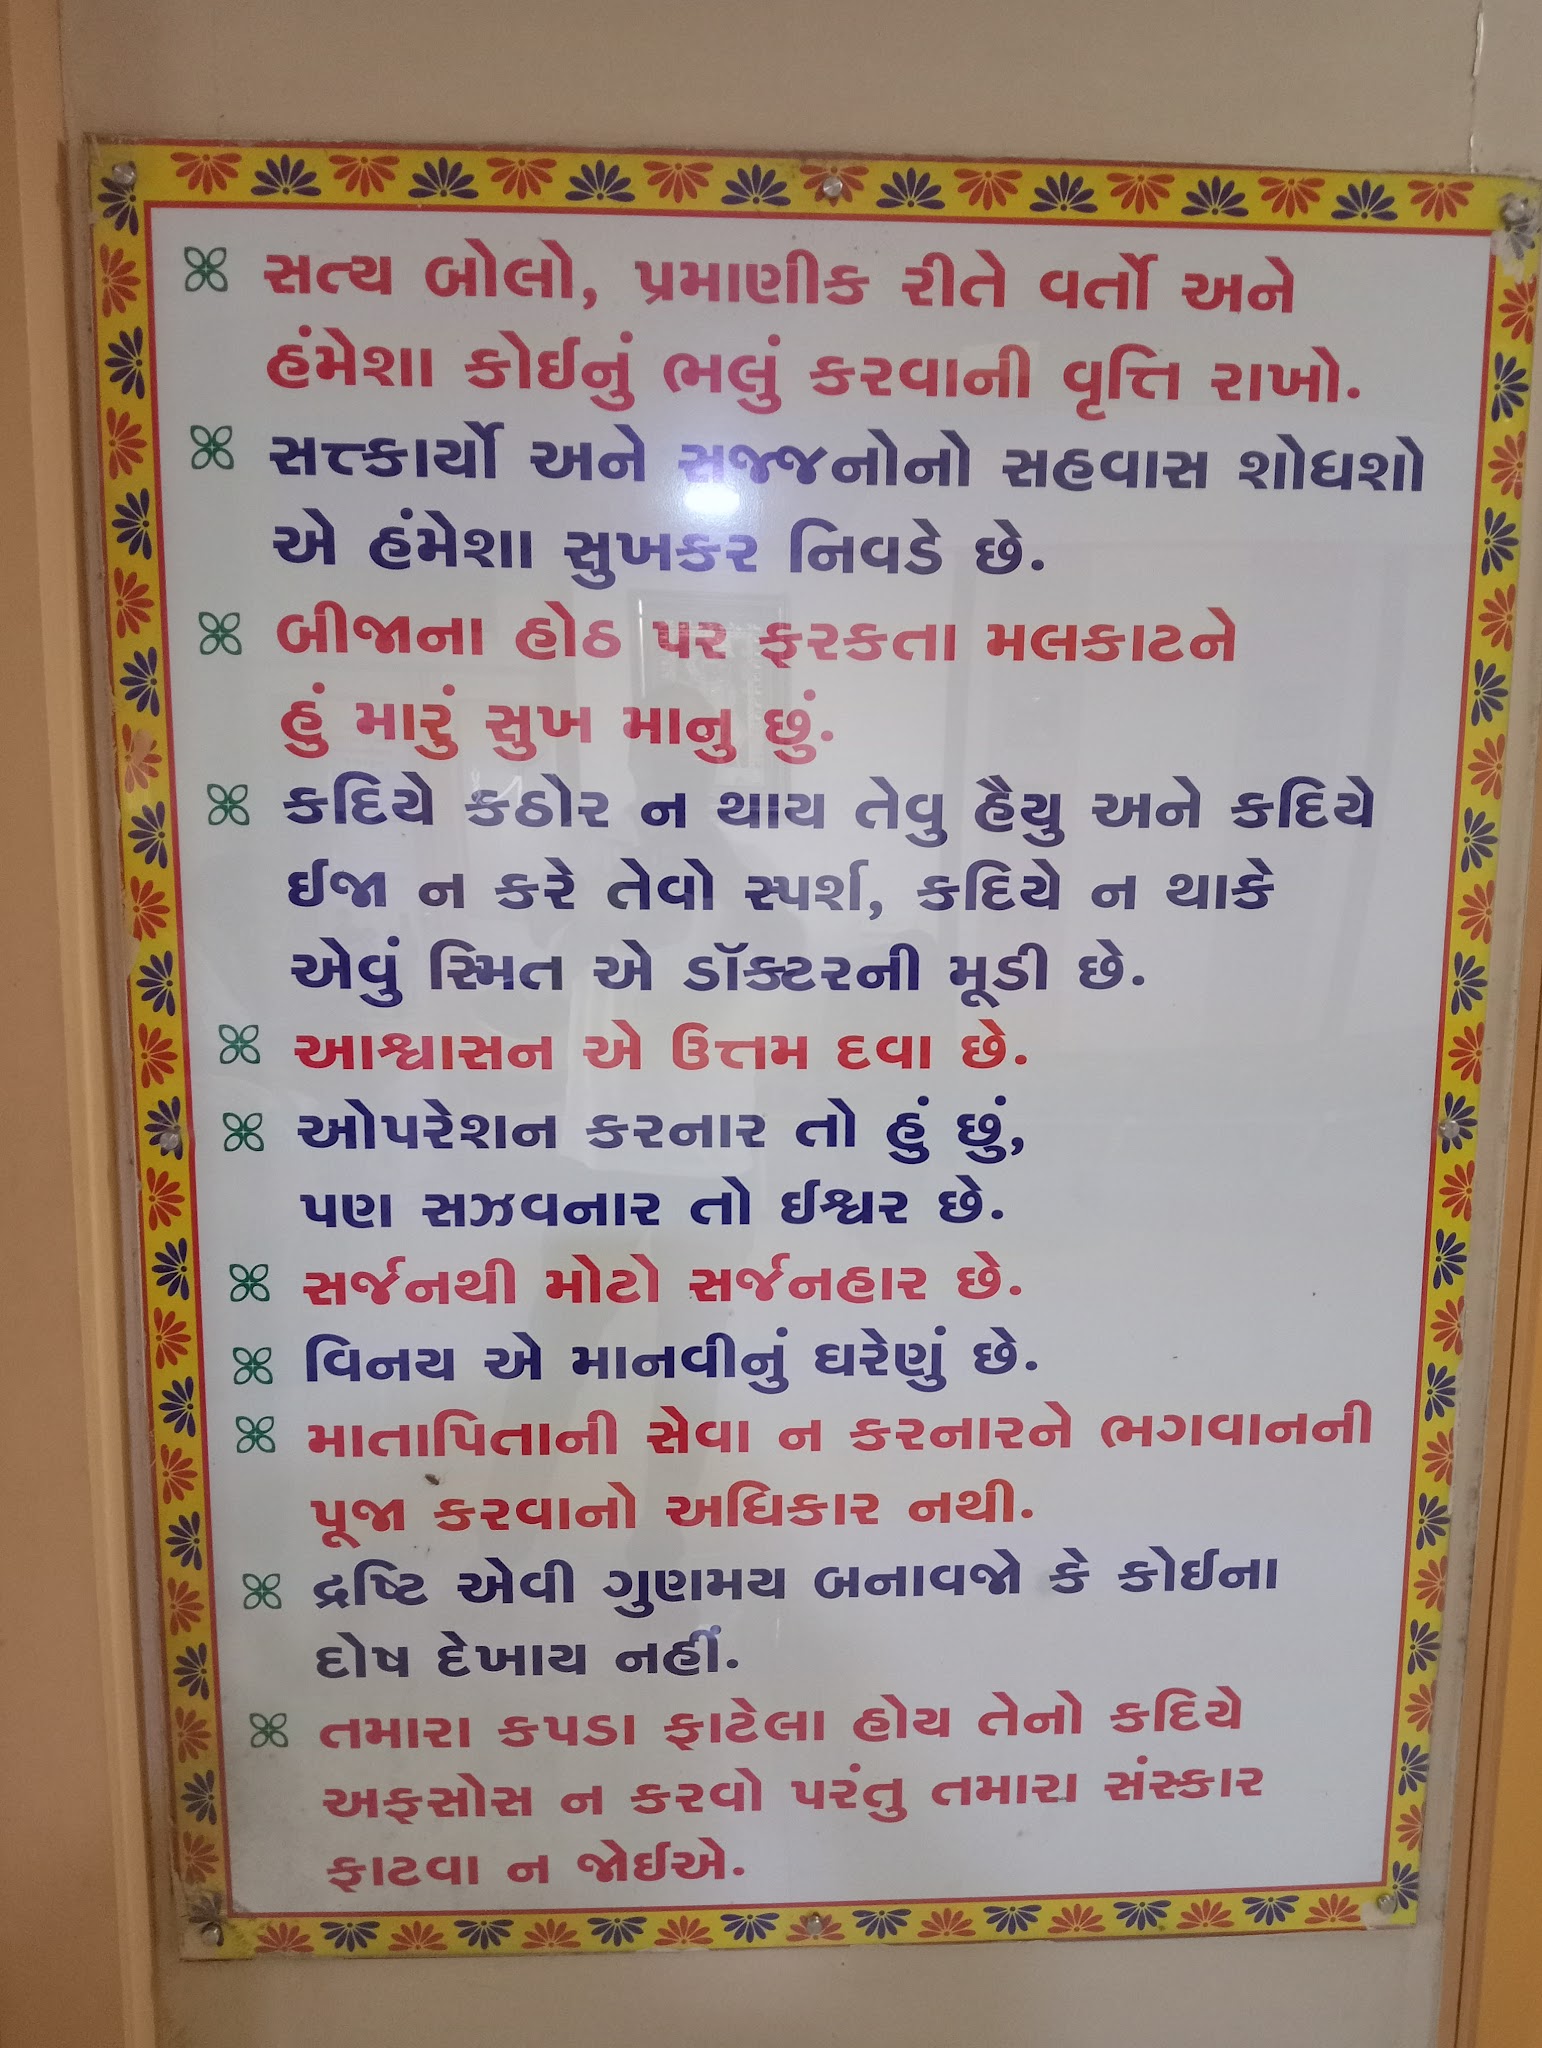 સત્ય બોલો, પ્રમાણીક રીતે વર્તો અને
હંમેશા કોઈનું ભલું કરવાની વૃત્તિ રાખો.
સત્કાર્યો અને સજ્જનોનો સહવાસ શોધશો
એ હંમેશા સુખકર નિવડે છે.
બીજાના હોઠ પર ફરકતા મલકાટને
હું મારું સુખ માનુ છું.
કદિયે કઠોર ન થાય તેવુ હૈયુ અને કદિયે
ઈજા ન કરે તેવો સ્પર્શ, કદિયે ન થાકે
એવું સ્મિત એ ડૉક્ટરની મૂડી છે.
આશ્વાસન એ ઉત્તમ દવા છે.
ઓપરેશન કરનાર તો હું છું,
પણ સઝવનાર તો ઈશ્વર છે.
સર્જનથી મોટો સર્જનહાર છે.
વિનય એ માનવીનું ઘરેણું છે.
માતાપિતાની સેવા ન કરનારને ભગવાનની
પૂજા કરવાનો અધિકાર નથી.
દ્રષ્ટિ એવી ગુણમય બનાવજો કે કોઈના
દોષ દેખાય નહીં.
તમારા કપડા ફાટેલા હોય તેનો કદિયે
અફસોસ ન કરવો પરંતુ તમારા સંસ્કાર
ફાટવા ન જોઈએ.